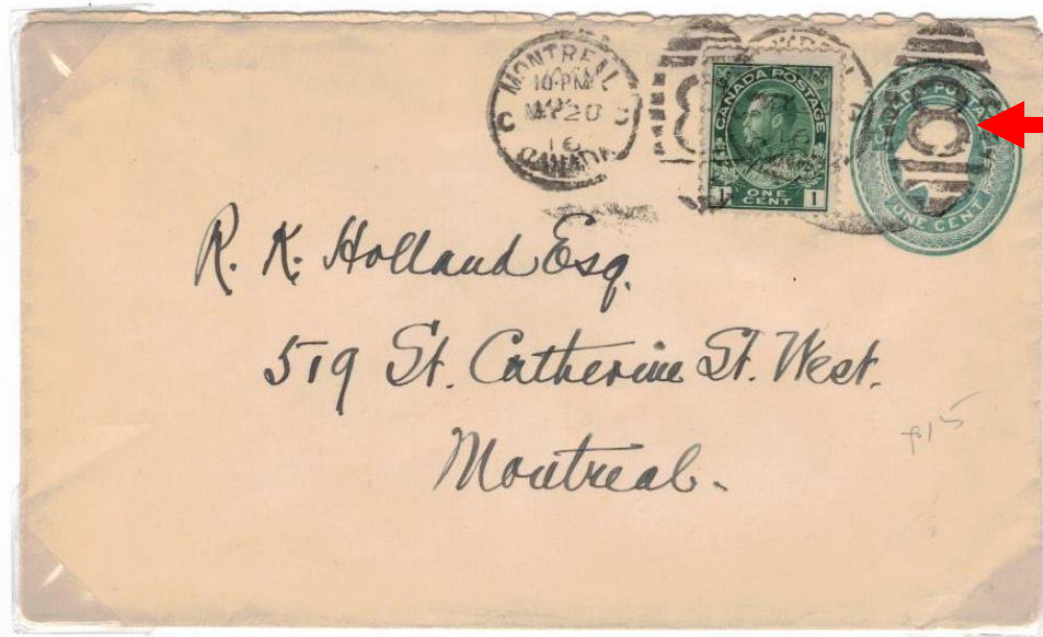 MONTREAL
10·PM
MY 20
C C
16
CANADA
CANADA POSTAGE
1 ONE CENT 1
CANADA POSTAGE
ONE CENT
R. K. Holland Esq.
519 St. Catherine St. West.
Montreal.